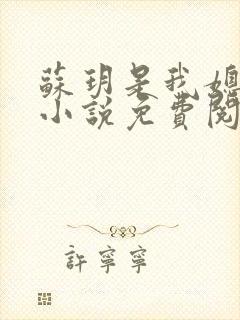 蘇玥是我媳
小說免費閱
許寧寧